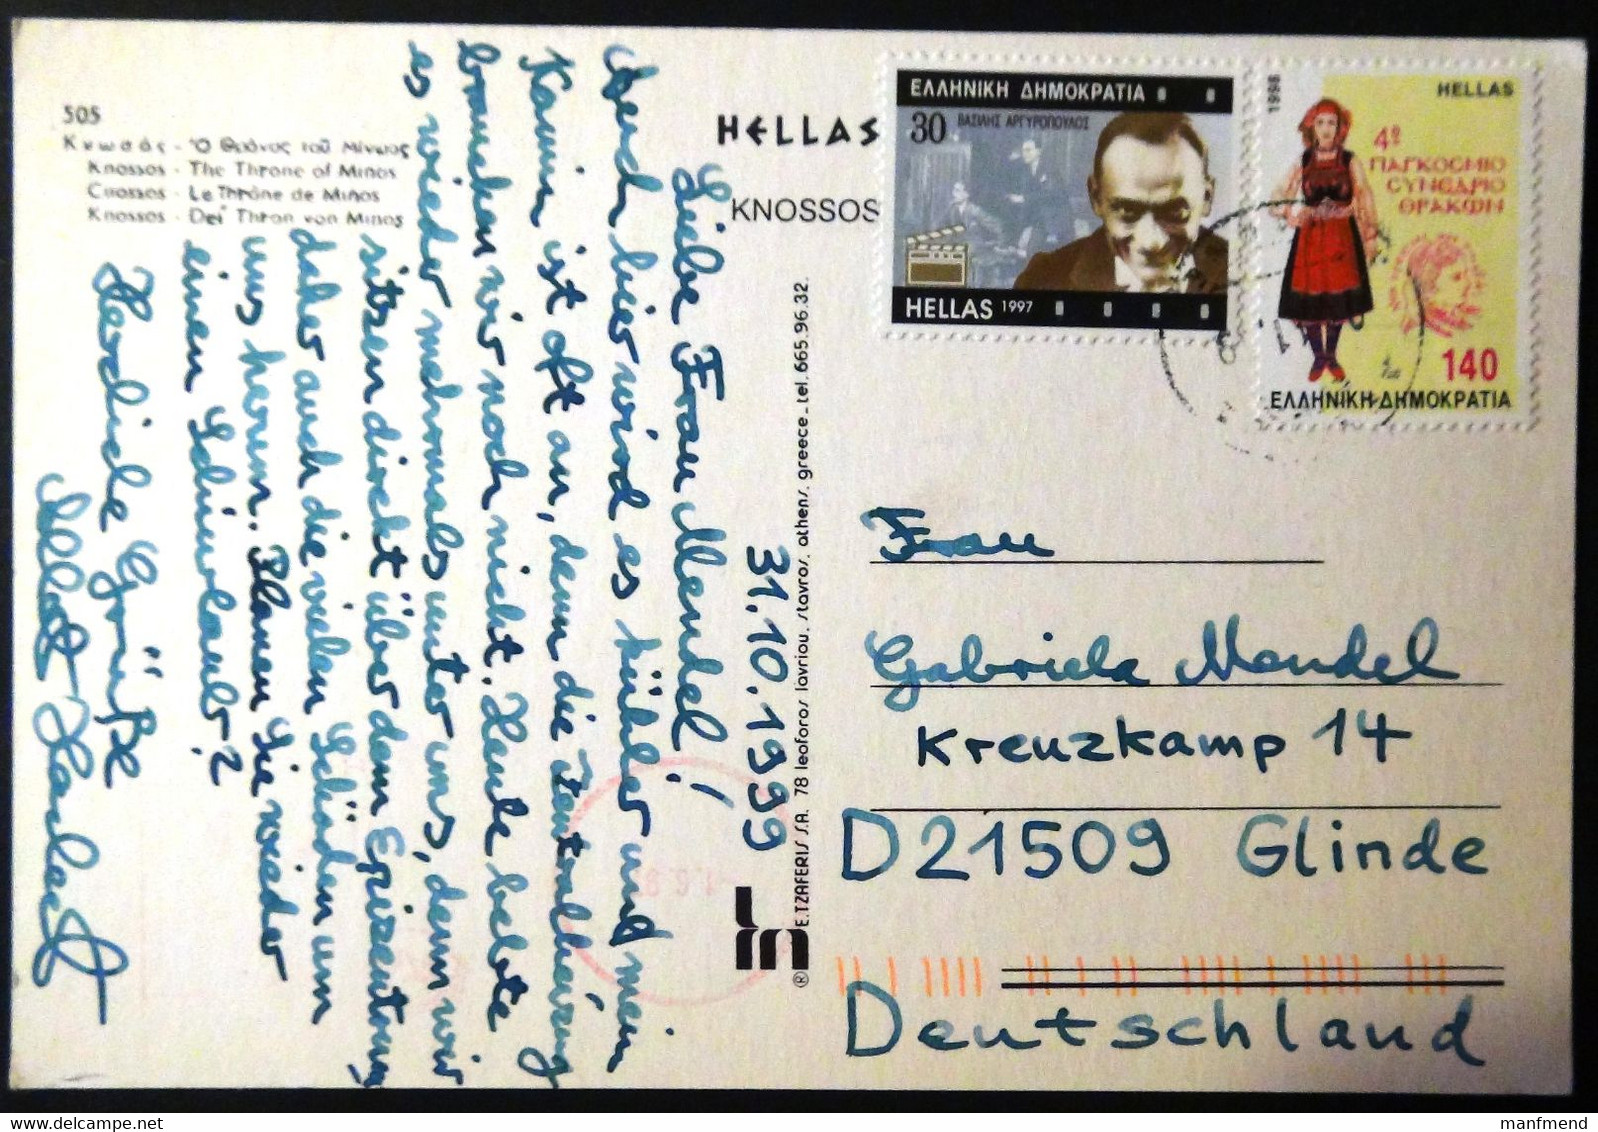 505
Κνωσός - Ὁ Θρόνος τοῦ Μίνωος
Knossos - The Throne of Minos
Cnossos - Le Thrône de Minos
Knossos - Der Thron von Minos
HELLAS
KNOSSOS
31.10.1999
Liebe Frau Mendel!
Auch hier wird es kühler und mein
Kamin ist oft an, denn die Zentralheizung
brauchen wir noch nicht. Heute bebte
es wieder mehrmals unter uns, denn wir
sitzen direkt über dem Epizentrum
daher auch die vielen Schäden um
uns herum. Planen Sie wieder
einen Schiurlaub?
Herzliche Grüße
® E.TZAFERIS S.A. 78 leoforos lavriou, stavros, athens, greece_tel. 665.96.32.
ΕΛΛΗΝΙΚΗ ΔΗΜΟΚΡΑΤΙΑ
30
ΒΑΣΙΛΗΣ ΑΡΓΥΡΟΠΟΥΛΟΣ
HELLAS 1997
1998
HELLAS
4º
ΠΑΓΚΟΣΜΙΟ
CΥΝΕΔΡΙΟ
ΘΡΑΚΩΝ
140
ΕΛΛΗΝΙΚΗ ΔΗΜΟΚΡΑΤΙΑ
Frau
Gabriela Mendel
Kreuzkamp 14
D21509 Glinde
Deutschland
manfmend